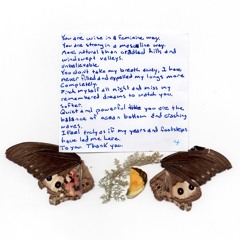 You are wise in a feminine way.
You are strong in a masculine way.
More natural than cradled hills and
windswept valleys.
Unbelievable.
You don't take my breath away, I have
never filled and expelled my lungs more
completely.
I rock myself all night and miss my
remembered dreams to watch you
soften.
Quiet and powerful you are the
balance of ocean bottom and crashing
waves.
I feel truly as if my years and footsteps
have led me here.
To you. Thank you.